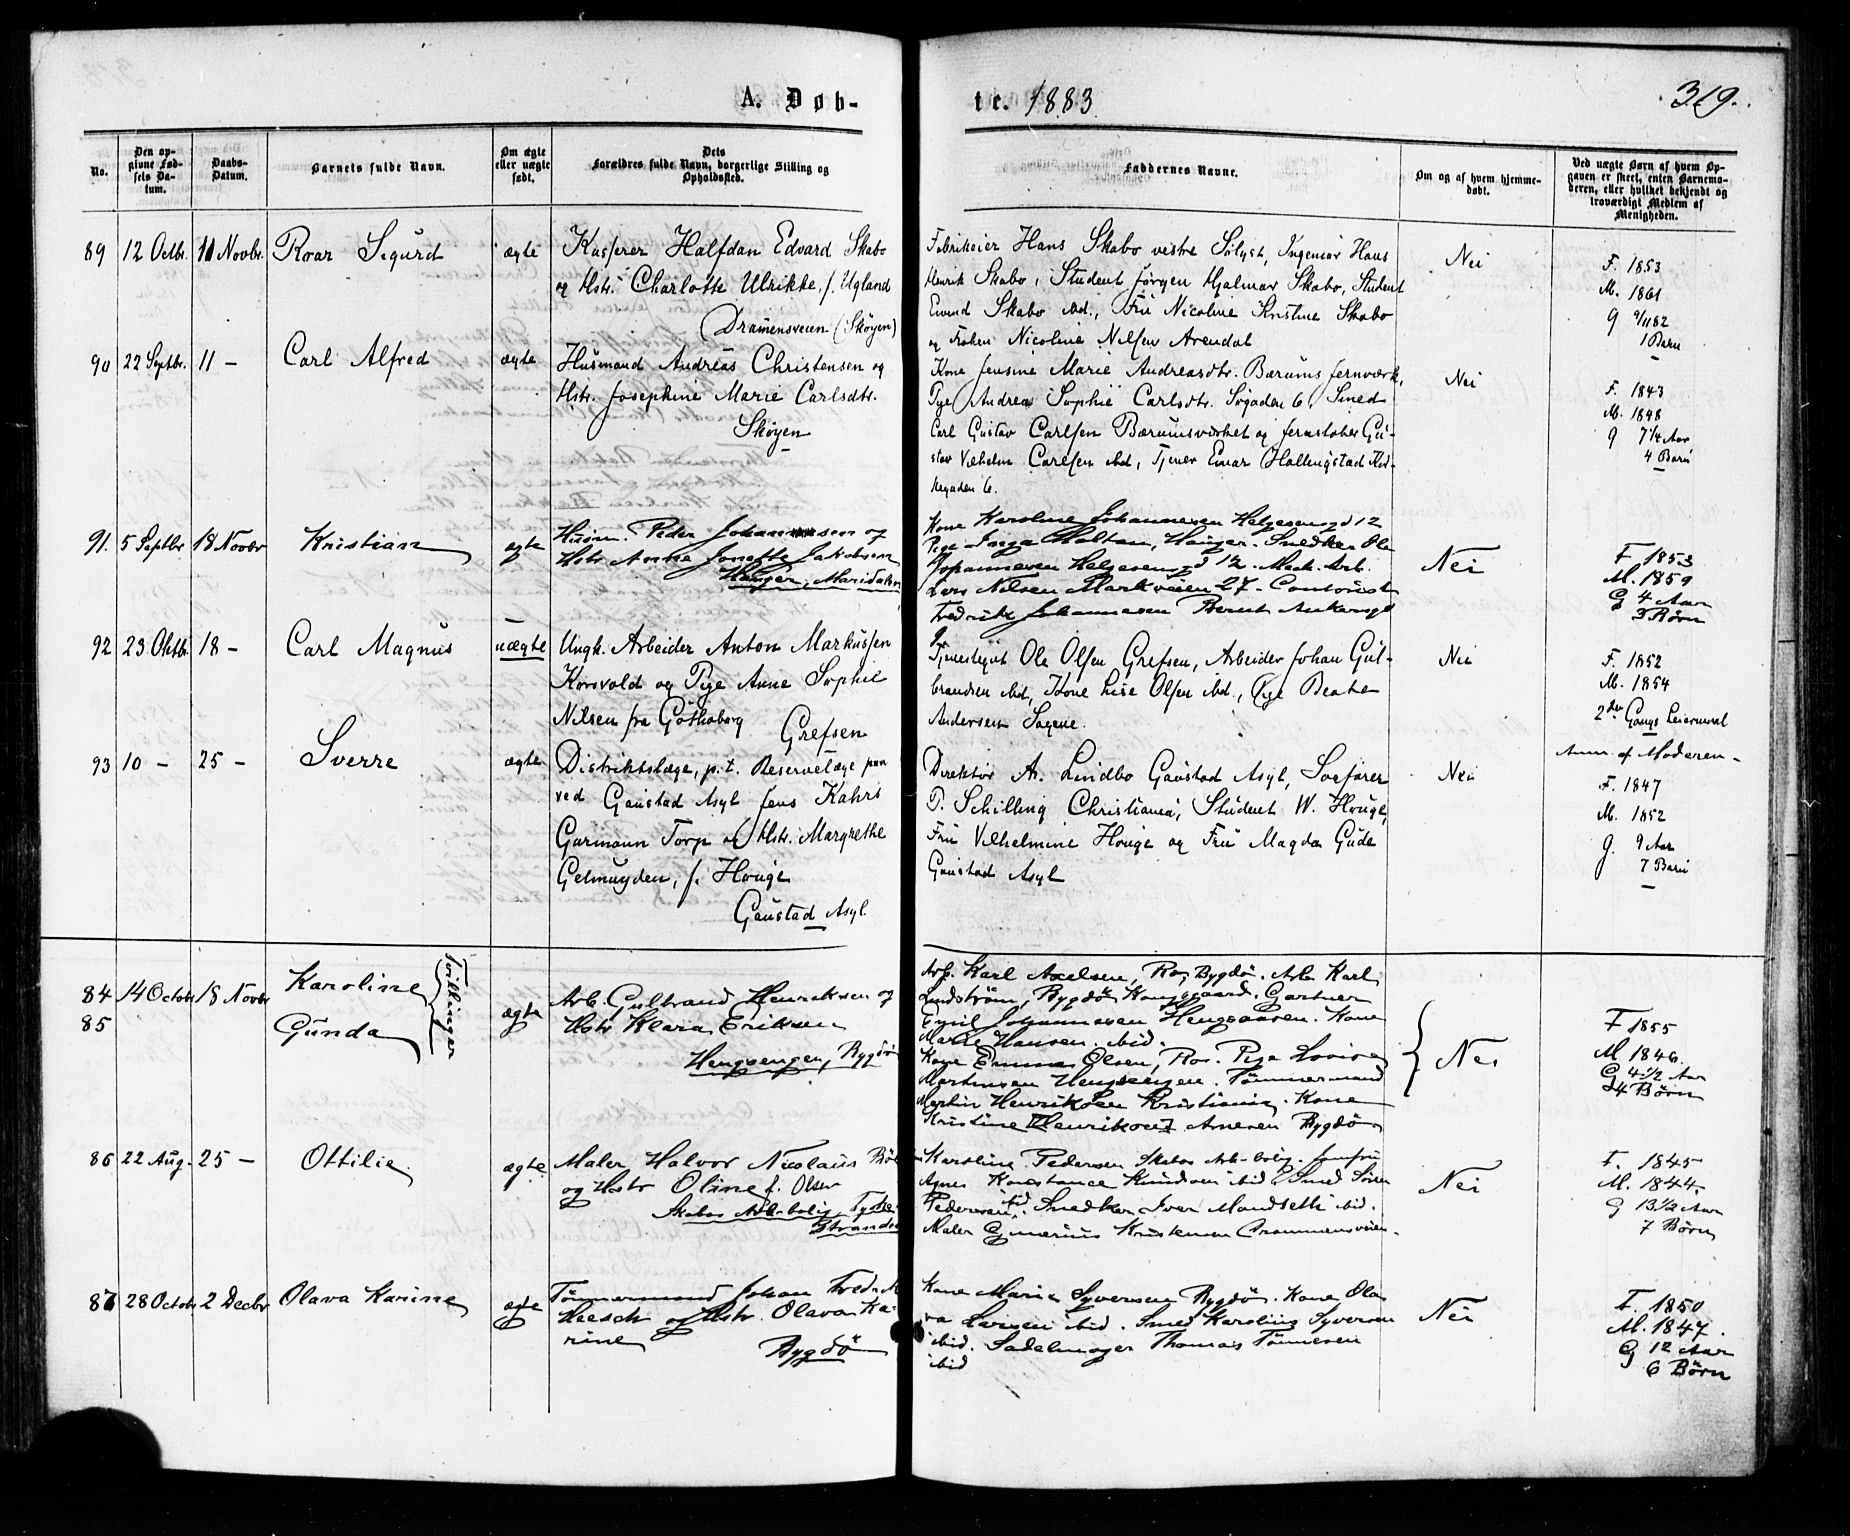 A. Døb-
te. 1883.
319.
No.
Den op-
givne Fød-
sels Da-
tum.
Daabs-
Datum.
Barnets fulde Navn.
Om ægte
eller uægte
født.
Dets
Forældres fulde Navn, borgerlige Stilling og
Opholdssted.
Faddernes Navne.
Om og af hvem hjemme-
døbt.
Ved uægte Børn af hvem Op-
gaven er skeet, enten Barnemo-
deren, eller hvilket bekjendt og
troværdigt Medlem af
Menigheden.
89 12 Octbr. 11 Novbr. Roar Sigurd ægte
Kasserer Halfdan Edvard Skabo
og Hstr. Charlotte Ulrikke, f. Ugland
Dramensveien (Skøyen)
Fabrikeier Hans Skabo vestre Sölyst, Ingeniør Hans
Henrik Skabo, Student Jørgen Hjalmar Skabo, Student
Eivind Skabo ibd., Fru Nicoline Kristine Skabo
og Frøken Nicoline Nilsen Arendal
Nei
F. 1853
M. 1861
g 9/11 82
1 Barn
90 22 Septbr. 11 - Carl Alfred ægte
Husmand Andreas Christensen og
Hstr. Josephine Marie Carlsdtr.
Skøyen
Kone Jensine Marie Andreasdtr. Bærums Jernværk,
Pge Andrea Sophie Carlsdtr. Søgaden 6, Smed
Carl Gustav Carlsen Bærumsværket og Jernstøber Gu-
stav Vilhelm Carlsen ibd, Tjener Einar Hallingstad Kir-
kegaden 6.
Nei
F. 1843
M. 1848
g 7 1/4 Aar
4 Barn
91. 5 Septbr 18 Novbr Kristian ægte
Husm. Peder Johannesen og
Hstr Anne Jonette Jakobsen
Hauger, Maridalen
Kone Karoline Johannesen Helgesensgd 12
Pige Inga Holtan, Hauger. Snedker Ole
Johannesen Helgesensgd 12. Mek. Arb.
Lars Nilsen Markveien 27 - Contorist
Fredrik Johannesen Bernt Ankersgd
Nei
F 1853
M. 1859
G 4 Aar
3 Børn
92 23 Oktb. 18 - Carl Magnus uægte
Ungk. Arbeider Anton Markussen
Korsvold og Pge Anne Sophie
Nilsen fra Gøthaborg
Grefsen
Tjenestegut Ole Olsen Grefsen, Arbeider Johan Gul-
brandsen ibd, Kone Lise Olsen ibd., Pge Beate
Andersen Sagene.
Nei
F. 1852
M. 1854
2den Gangs Leiermaal
Anm. af Moderen -
93 10 - 25 - Sverre ægte
Distriktslæge, p.t. Reservelæge
ved Gaustad Asyl Jens Kahrs
Garmann Torp og Hstr. Margrethe
Gelmuyden, f. Houge
Gaustad Asyl.
Direktør A. Lindbo Gaustad Asyl, Sagfører
P. Schilling Christiania, Student W. Houge,
Fru Vilhelmine Houge og Fru Magda Gude
Gaustad Asyl
Nei
F. 1847
M. 1852
g. 9 Aar
7 Barn
84 14 Octobr 18 Novbr Karoline
85 Gunda Tvillinger ægte
Arb. Gulbrand Henriksen og
Hstr Klara Eriksen
Hengsengen, Bygdø
Arb. Karl Axelsen, Ro, Bygdø. Arb Karl
Lindstrøm, Bygdø Kongsgaard. Gartner
Emil Johannessen Hengsaasen. Kone
Marie Hansen. ibid.
Kone Emma Olsen, Ro. Pige Lovise
Martinsen Hengsengen. Tømmermand
Martin Henriksen Kristiania, Kone
Kristine Henriksen Arnesen Bygdø
Nei
F 1855
M 1846.
G 4 1/2 Aar
4 Børn
86 22 Aug. 25 - Ottilie ægte
Maler Halvor Nicolaus
og Hstr Oline f. Olsen
Skabos Arb.bolig, Tyske
Stranden
Karoline Pedersen Skabos Arb-bolig. Jomfru
Agnes Konstance Knudsen ibid Smed Sören
Pedersen, ibid. Snedker Iver Mandseth ibid.
Maler Gjmerius Kristensen Drammensveien.
Nei
F. 1845
M. 1844.
G 13 1/2 Aar
7 Børn
87 28 Octobr 2 Decbr Olava Karine ægte
Tømmermand Johan Fredrik
Heesch og Hstr. Olava Ka-
rine
Bygdø
Kone Maria Syversen Bygdø. Kone Ola-
va Larsen ibid. Smed Karolius Syversen
ibid. Sadelmager Thomas Tønnesen
ibid
Nei
F. 1850
M. 1847.
G 12 Aar
6 Børn